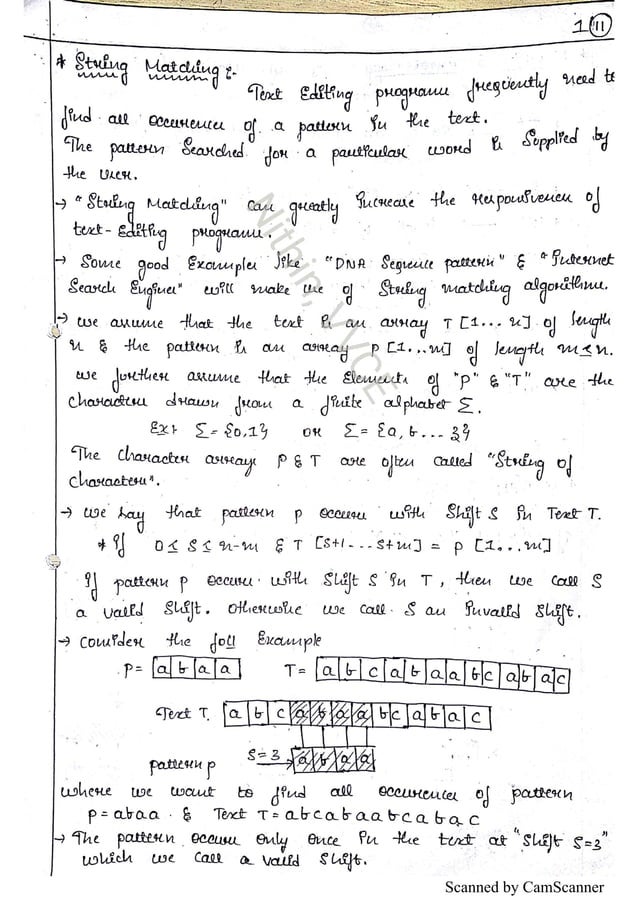 1 (11)
* String Matching :-
Text Editing programs frequently need to
find all occurences of a pattern in the text.
The pattern Searched for a particular word is Supplied by
the user.
→ "String Matching" can greatly increase the responsiveness of
text-Editing programs.
→ Some good Examples like "DNA Sequence pattern" & "Internet
Search Engines" will make use of String matching algorithms.
→ we assume that the text is an array T [1... n] of length
n & the pattern is an array P [1...m] of length m≤n.
we further assume that the Elements of "P" & "T" are the
characters drawn from a finite alphabet Σ.
Ex: Σ = {0,1} or Σ = {a, b ... z}
The character arrays P & T are often called "String of
characters".
→ we say that pattern P occurs with Shift S in Text T.
* If 0 ≤ S ≤ n-m & T [S+1...S+m] = P [1...m]
If pattern P occurs with Shift S in T, then we call S
a valid Shift. otherwise we call S an invalid Shift.
→ consider the foll Example
P = a b a a T = a b c a b a a b c a b a c
Text T. a b c a b a a b c a b a c
S=3 a b a a
pattern P
where we want to find all occurences of pattern
P = abaa & Text T = abcabaabcabac
→ The pattern occurs only once in the text at "Shift S=3"
which we call a valid Shift.
Nithin, VVCE
Scanned by CamScanner